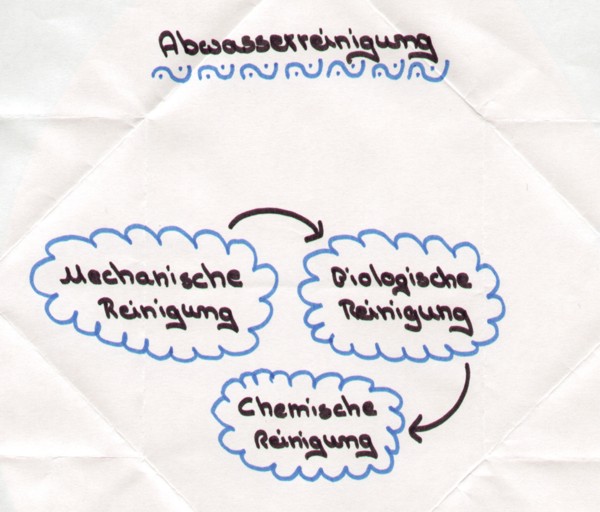 Abwasserreinigung
Mechanische
Reinigung
Biologische
Reinigung
Chemische
Reinigung